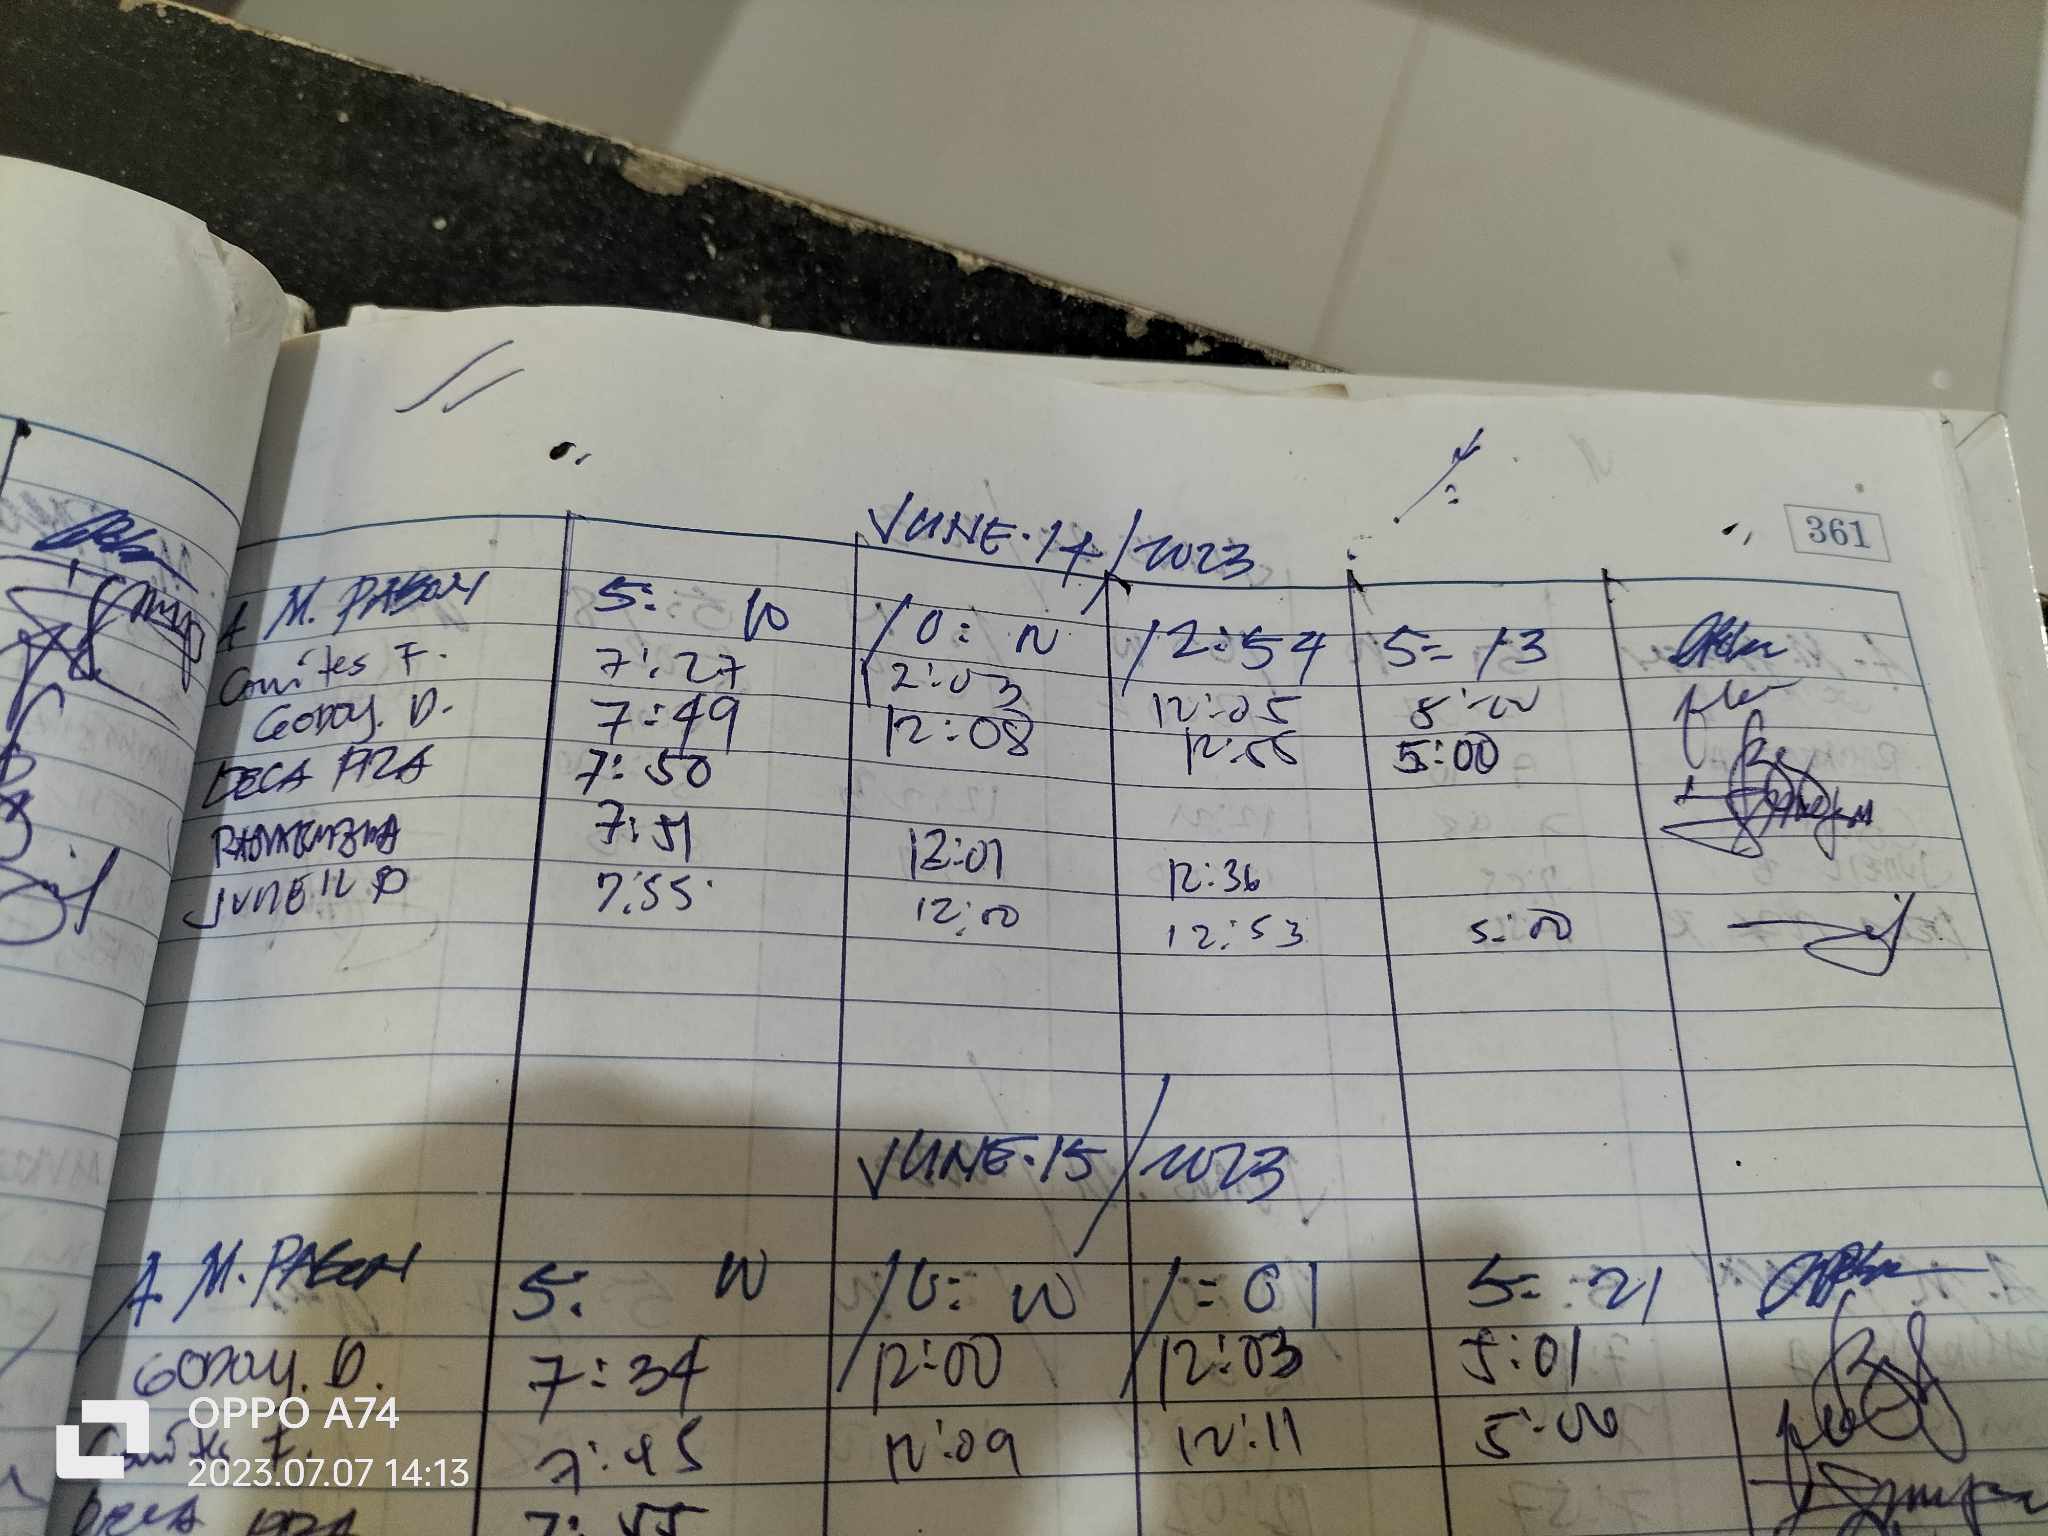 361
JUNE.14/2023
A M. PABON 5: 00 10: 00 12:54 5= 13
Comites F. 7:27 12:03 12:05 5:00
GODOY. D. 7:49 12:08 12:55 5:00
DECA 7:50
7:51 12:01 12:36
JUNE 7:55 12:00 12:53 5:00
JUNE.15/2023
A M. PABON 5: 00 10: 00 1=01 5= 21
GODOY. D. 7:34 12:00 12:03 5:01
Comites F. 7:45 12:09 12:11 5:00
DECA 7:55
OPPO A74
2023.07.07 14:13